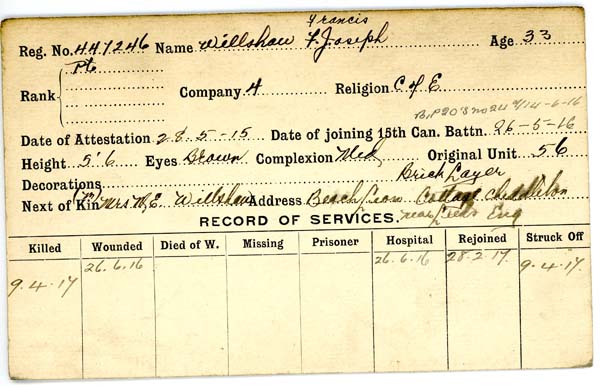 Francis
Reg. No. 447246 Name Willshaw F. Joseph Age 33
Pte
Rank Company 4 Religion C of E
Date of Attestation 28.5-15 Date of joining 15th Can. Battn. 26-5-16
Height 5'6 Eyes Brown Complexion Med Original Unit 56
Decorations Brick Layer
Next of Kin Mrs W. E. Willshaw Address Beach Cottage
near Leeds Eng
RECORD OF SERVICES.
Killed Wounded Died of W. Missing Prisoner Hospital Rejoined Struck Off
26.6.16 26.6.16 28.2.17.
9.4.17 9.4.17.